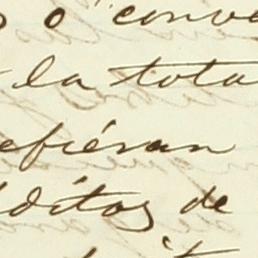 o conve
la tota
efiéran
ditos de